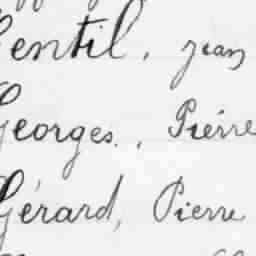 Gentil, jean
Georges., Pierre
Gérard, Pierre